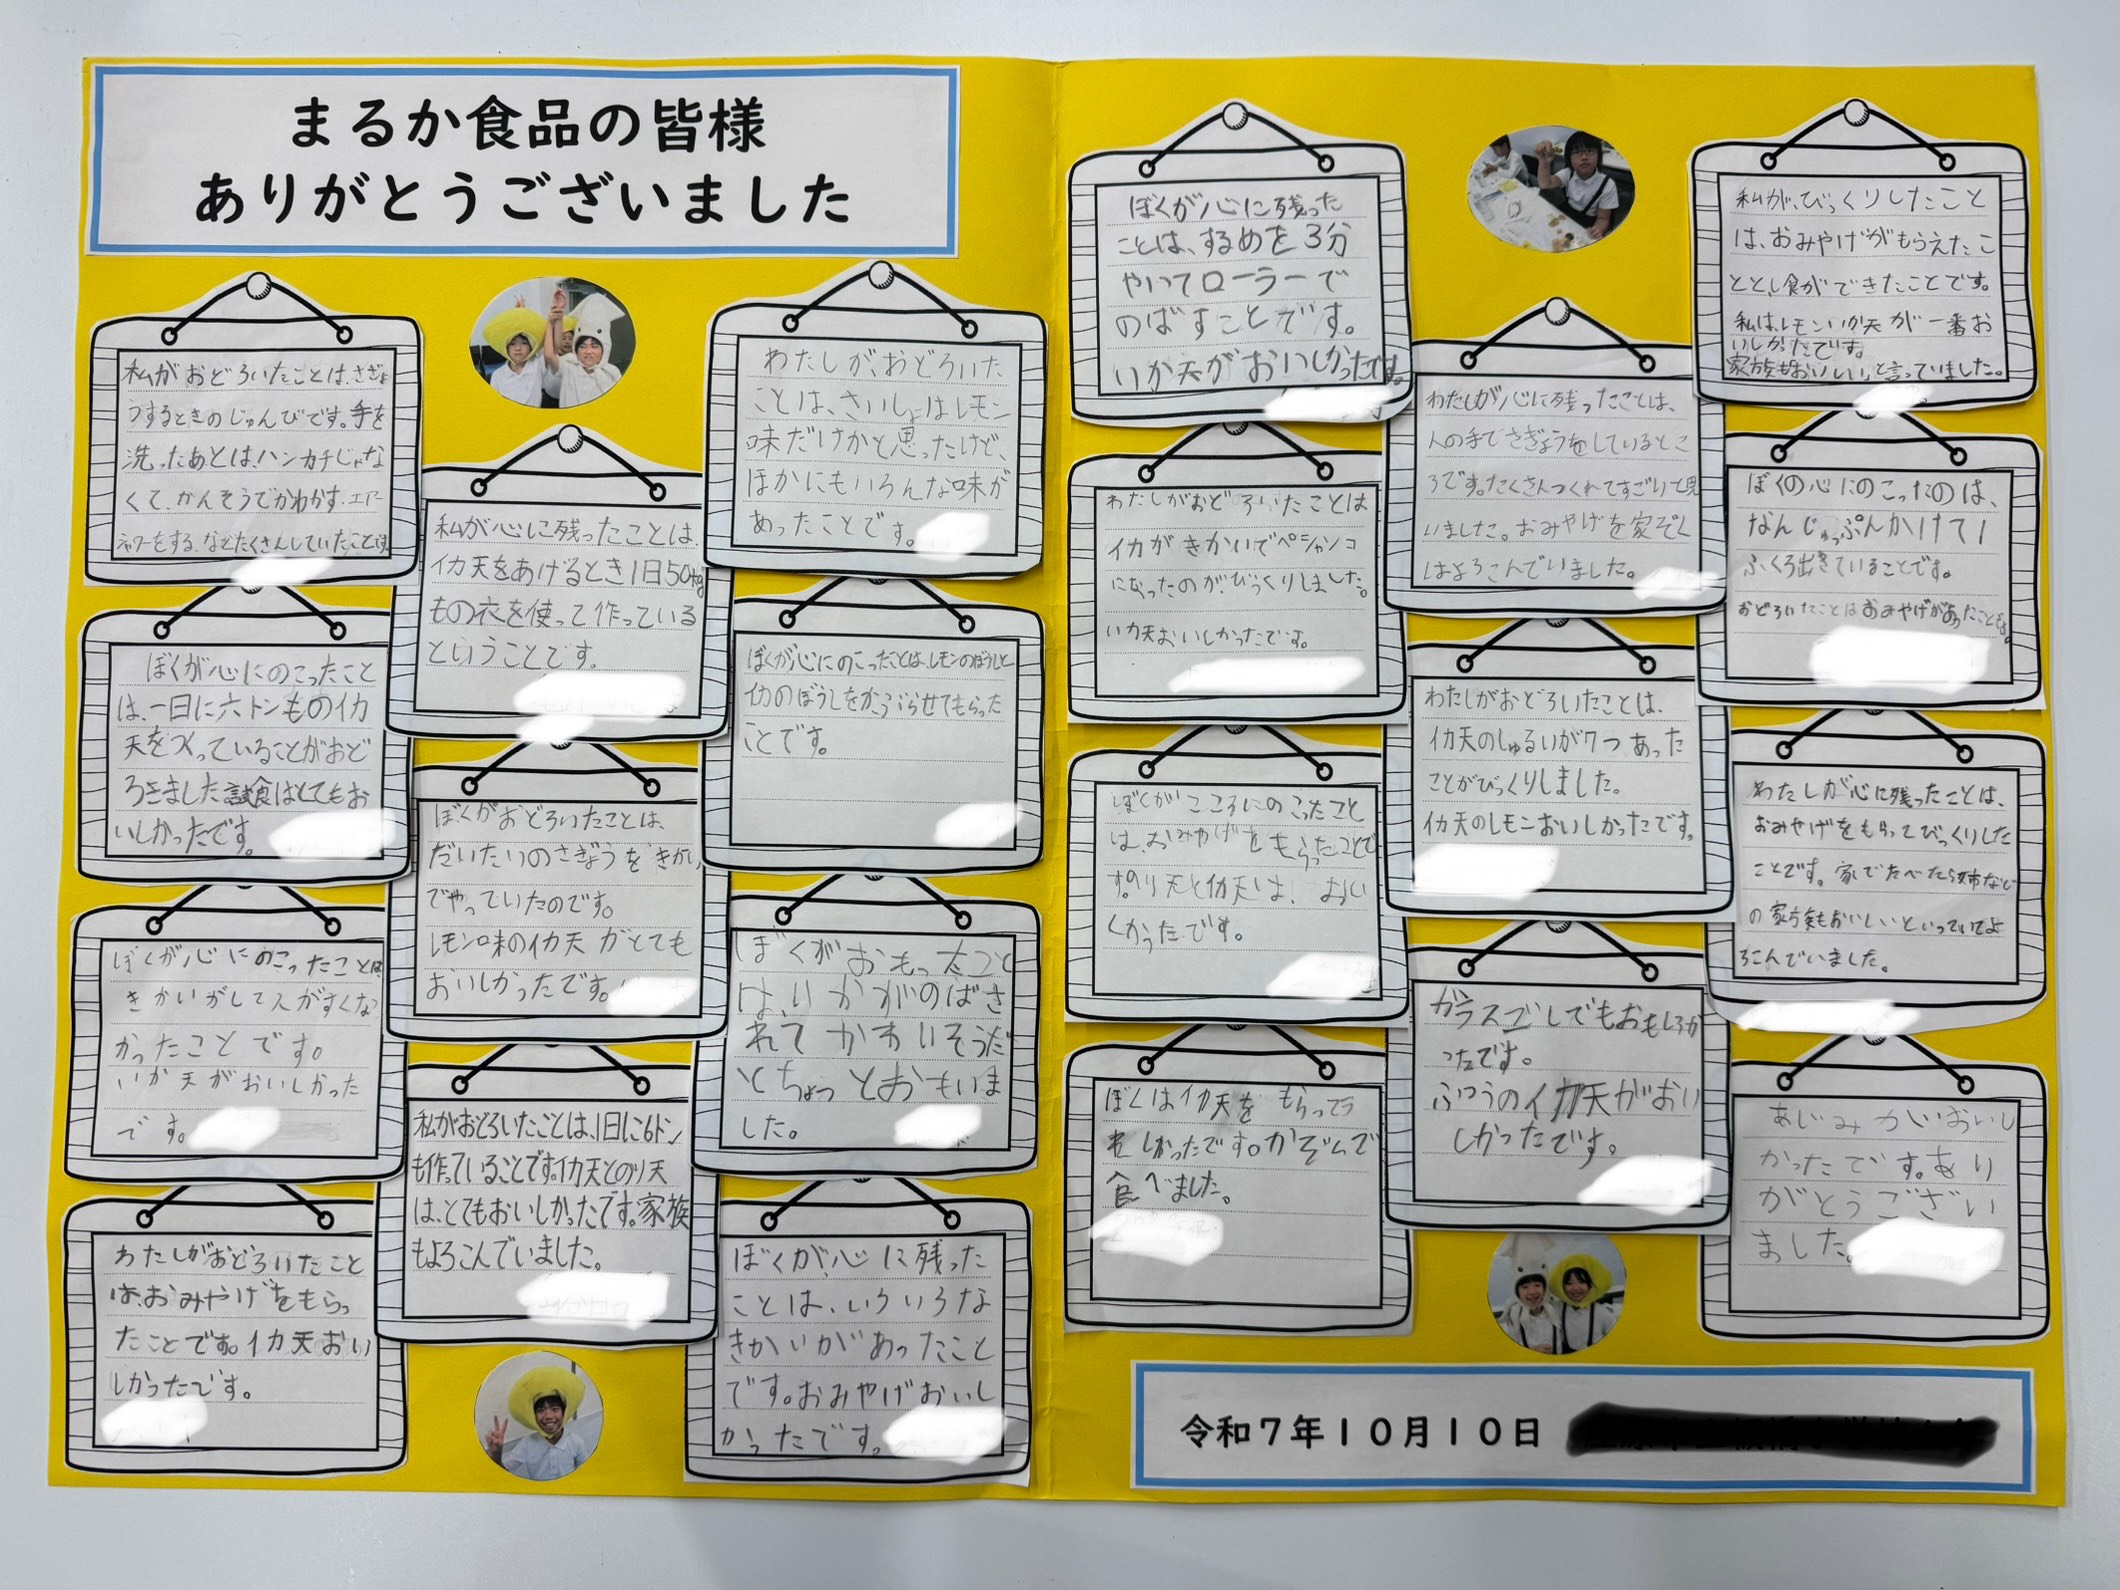 まるか食品の皆様
ありがとうございました
私がおどろいたことは、さぎょ
うするときのじゅんびです。手を
洗ったあとは、ハンカチじゃな
くて、かんそうでかわかす。エアー
シャワーをする、などたくさんしていたことです。
ぼくが心にのこったこと
は、一日に六トンものイカ
天をつくっていることがおど
ろきました試食はとてもお
いしかったです。
ぼくが心にのこったことは、
きかいがして人がすくな
かったことです。
いか天がおいしかった
です。
わたしがおどろいたこと
は、おみやげをもらっ
たことです。イカ天おい
しかったです。
私が心に残ったことは、
イカ天をあげるとき1日50kg
もの衣を使って作っている
ということです。
ぼくがおどろいたことは、
だいたいのさぎょうをきかい
でやっていたのです。
レモン味のイカ天がとても
おいしかったです。
私がおどろいたことは、1日に6トン
も作っていることです。イカ天とのり天
は、とてもおいしかったです。家族
もよろこんでいました。
わたしが、おどろいた
ことは、さいしょはレモン
味だけかと思ったけど、
ほかにもいろんな味が
あったことです。
ぼくが心にのこったことは、レモンのぼうしと
イカのぼうしをかぶらせてもらった
ことです。
ぼくがおもっ太こと
は、いかがのばさ
れてかわいそうだ
とちょっとおもいま
した。
ぼくが、心に残った
ことは、いろいろな
きかいがあったこと
です。おみやげおいし
かったです。
ぼくが心に残った
ことは、するめを3分
やいてローラーで
のばすことです。
いか天がおいしかったです。
わたしがおどろいたことは
イカがきかいでペシャンコ
になったのが、びっくりしました。
いカ天おいしかったです。
ぼくがこころにのこったこと
は、おみやげをもらったことで
す。のり天とイカ天は、おいし
くかったです。
ぼくはイカ天をもらってう
れしかったです。かぞくで
食べました。
わたしが心に残ったことは、
人の手でさぎょうをしているとこ
ろです。たくさんつくれてすごいと思
いました。おみやげを家ぞく
はよろこんでいました。
わたしがおどろいたことは、
イカ天のしゅるいが7つあった
ことがびっくりしました。
イカ天のレモンおいしかったです。
ガラスごしでもおもしろか
ったです。
ふつうのイカ天がおい
しかったです。
私が、びっくりしたこと
は、おみやげがもらえたこ
とと、し食ができたことです。
私は、レモンいか天が一番お
いしかったです。
家族も「おいしい」と言っていました。
ぼくの心にのこったのは、
なんじゅっぷんかけて1
ふくろ出きていることです。
おどろいたことはおみやげがあったことです。
わたしが心に残ったことは、
おみやげをもらってびっくりした
ことです。家でたべたら姉など
の家族もおいしいといっていてよ
ろこんでいました。
あじみがおいし
かったです。あり
がとうござい
ました。
令和7年10月10日